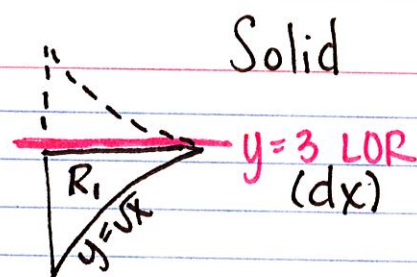 Solid
y=3 LOR
(dx)
R₁
y=√x